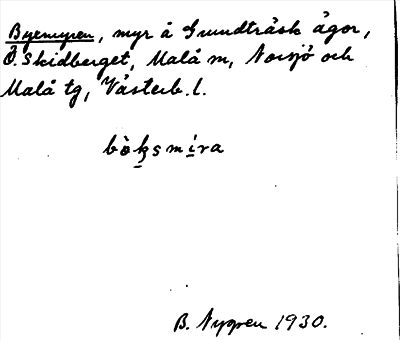 Byemyren, myr å Grundträsk ägor,
Ö. Skidberget, Malå m, Norsjö och
Malå tg, Västerb. l.
bò̱ksmí̱ra
B. Nygren 1930.